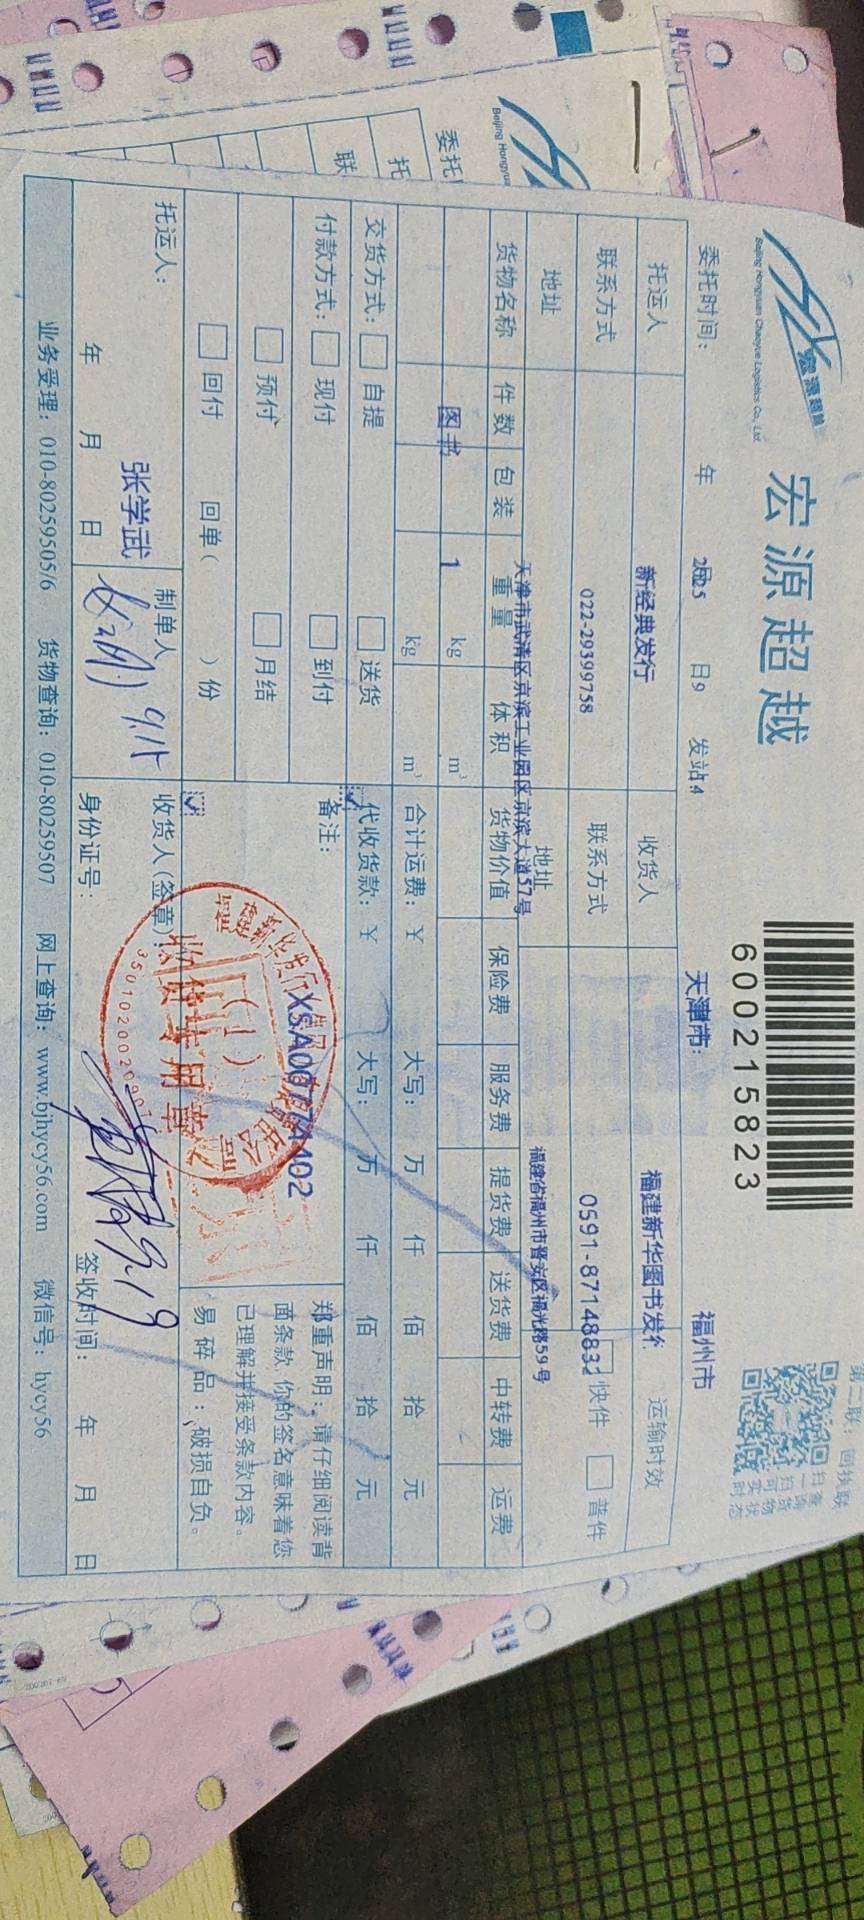 宏源超越
宏源超越
Beijing Hongyuan Chaoyue Logistics Co., Ltd
600215823
第二联：回执联
扫一扫
查询货物
可实时状态
委托时间： 年 2025 日 9 发站 4 天津市： 福州市
托运人 新经典发行 收货人 福建新华图书发行 运输时效
联系方式 022-29399758 联系方式 0591-87148832 快件 普件
地址 天津市武清区京滨工业园区京滨大道57号 地址 福建省福州市晋安区福光路59号
货物名称 件数 包装 重量 体积 货物价值 保险费 服务费 提货费 送货费 中转费 运费
图书 1 kg m³
kg m³ 合计运费：￥ 大写： 万 仟 佰 拾 元
交货方式： 自提 送货 代收货款：￥ 大写： 万 仟 佰 拾 元
付款方式： 现付 到付 备注： XSA00774402
预付 月结
回付 回单（ ）份
郑重声明：请仔细阅读背
面条款，你的签名意味着您
已理解并接受条款内容。
易碎品：破损自负。
托运人： 张学武 制单人 收货人(签章)：
收货专用章
（1）
年 月 日 9.15 身份证号： 9.19 签收时间： 年 月 日
业务受理：010-80259505/6 货物查询：010-80259507 网上查询：www.bjhycy56.com 微信号：hycy56
Beijing Hongyuan
委托
托
联